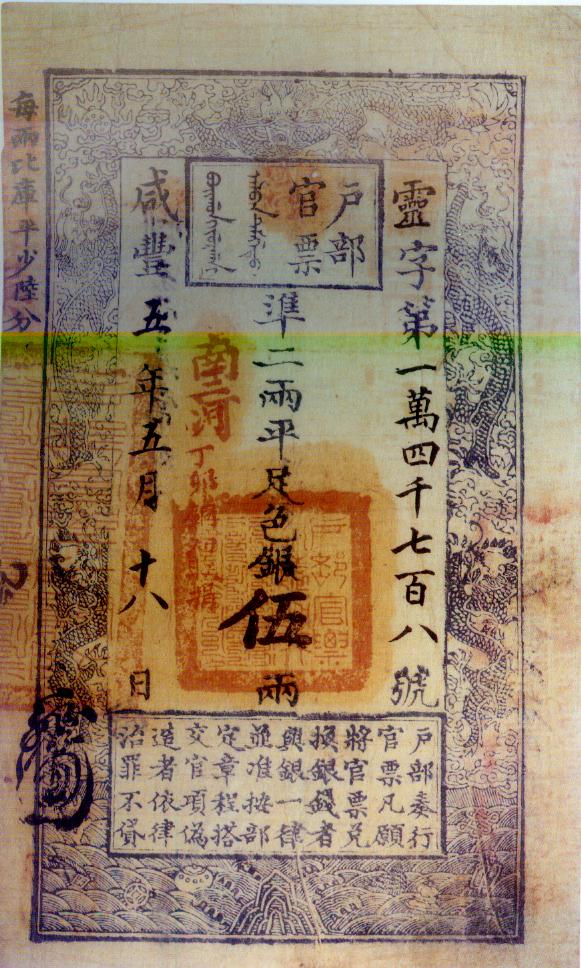 戶部
官票
靈字第一萬四千七百八號
準二兩平足色銀伍兩
南三河
咸豐五年五月十八日
每兩比庫平少陸分
戶部奏行
官票凡願
將官票兌
換銀錢者
與銀一律
並准按部
定章程搭
交官項偽
造者依律
治罪不貸